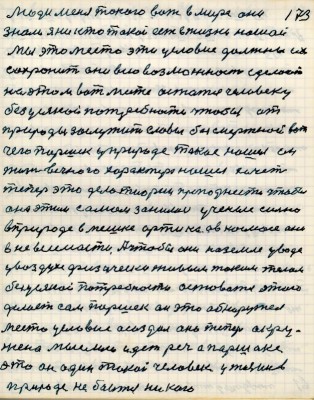 Люди меня такого вот в мире они 173
знают кто такой есть в жизни нашой
Мы это место это условие должны их
сохранить они всю возможность сделают
на этом вот месте остатся человеку
безо всякой потребности чтобы от
природы заслужить славы бессмертной вот
чего Паршек у природе такое нашел он
жизни вечного характера нашел хочет
теперь это дело теории преподнести чтобы
она этим самым занялас ученые сильно
в природе в технике арти на да в космосе они
в невесомости А чтобы они на земле у воде
у воздухе физически живым таким телом
безо всякой потребности оставатся этого
делает сам Паршек он это обнаружел
место условие создал оно теперь окру-
жена мыслию идет реч а паршаке
это он один такой человек у жизни в
природе не боится никого